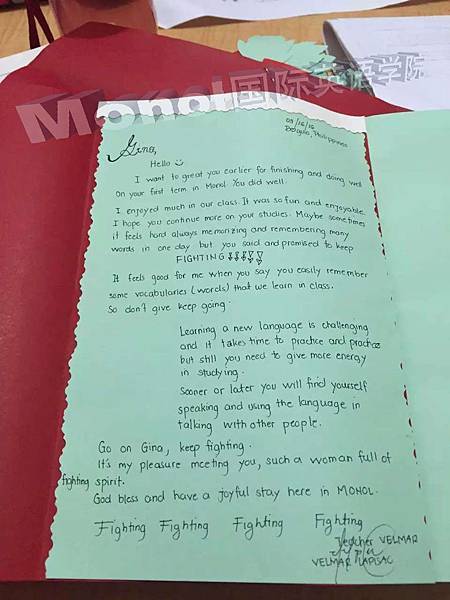 Monol国际英语学院
09/16/16
Baguio, Philippines
Gina,
Hello
I want to great you earlier for finishing and doing well
on your first term in Monol. You did well.
I enjoyed much in our class. It was so fun and enjoyable.
I hope you continue more on your studies. Maybe sometimes
it feels hard always memorizing and remembering many
words in one day but you said and promised to keep
FIGHTING!!!!!
It feels good for me when you say you easily remember
some vocabularies (words) that we learn in class.
So don't give keep going.
Learning a new language is challenging
and it takes time to practice and practice
but still you need to give more energy
in studying.
Sooner or later you will find yourself
speaking and using the language in
talking with other people.
Go on Gina, keep fighting.
It's my pleasure meeting you, such a woman full of
fighting spirit.
God bless and have a joyful stay here in MONOL.
Fighting Fighting Fighting Fighting
Teacher VELMAR
VELMAR LAPISAC